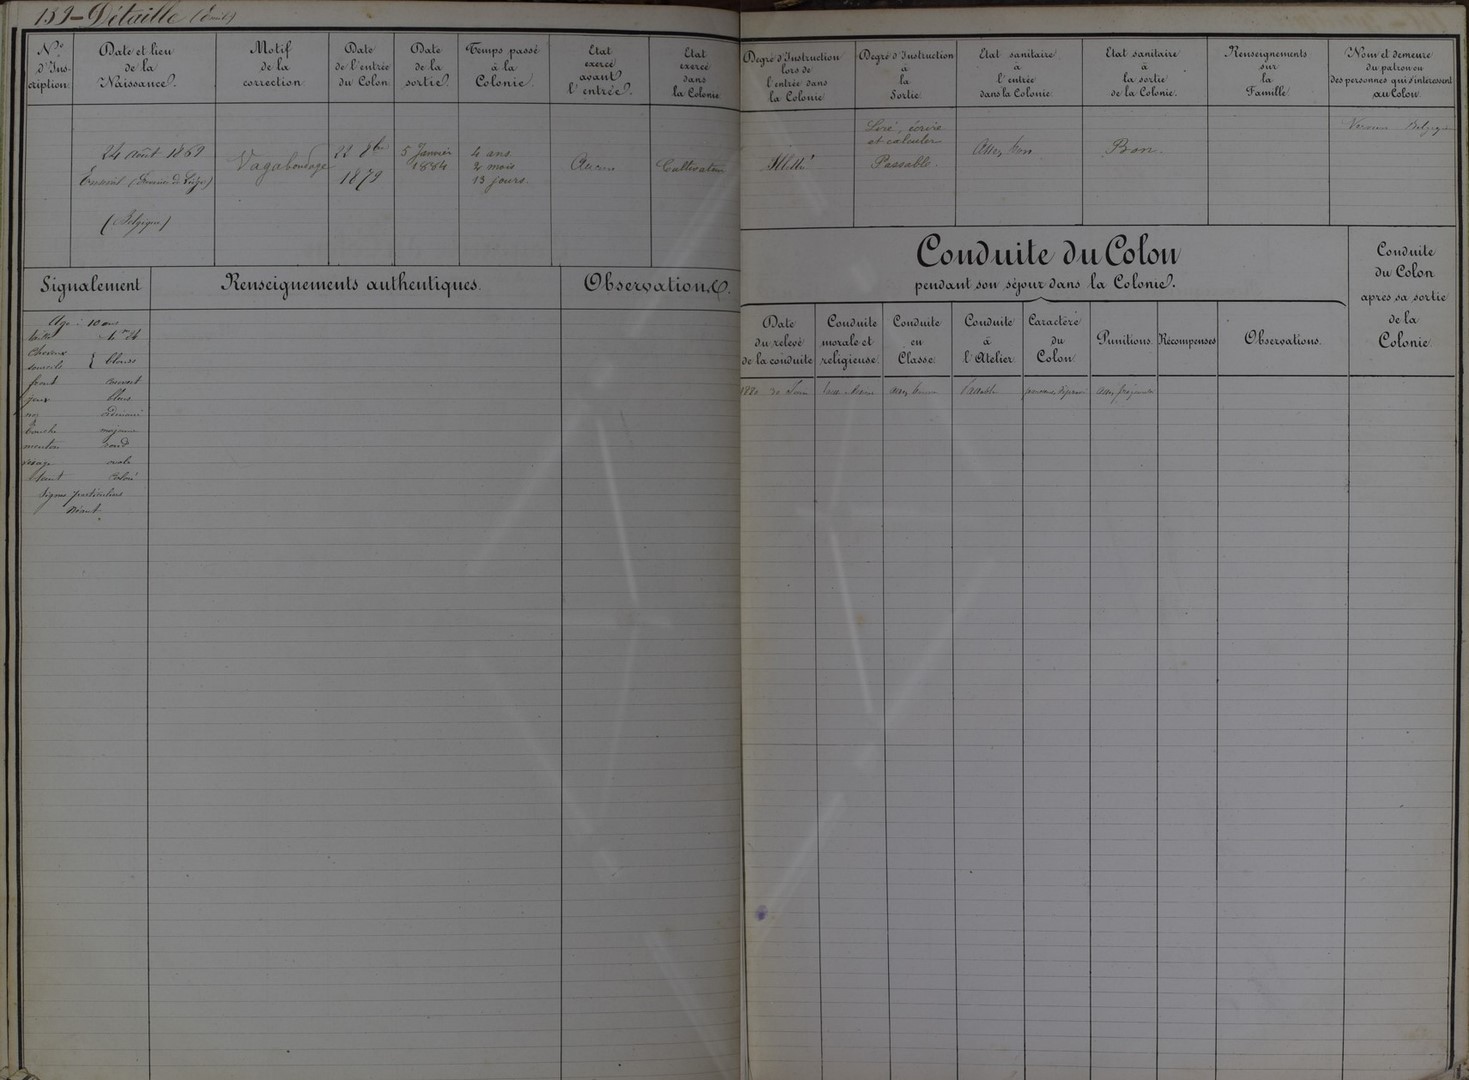 159 - Détaille (Emile)
N.º d'Inscription.
Date et lieu de la Naissance.
Motif de la correction
Date de l'entrée du Colon.
Date de la sortie.
Temps passé à la Colonie.
Etat exercé avant l'entrée.
Etat exercé dans la Colonie.
Degré d'Instruction lors de l'entrée dans la Colonie.
Degré d'Instruction à la Sortie.
Etat sanitaire à l'entrée dans la Colonie.
Etat sanitaire à la sortie de la Colonie.
Renseignements sur la Famille.
Nom et demeure du patron ou des personnes qui s'intéressent au Colon.
24 Août 1869
(Belgique)
Vagabondage
22 8bre
1879
5 Janvier
1884
4 ans
2 mois
13 jours.
Aucun
Cultivateur
Illettré
Lire, écrire
et calculer
Passable.
Assez bon
Bon.
Belgique
Signalement
Renseignements authentiques.
Observations.
Conduite du Colon
pendant son séjour dans la Colonie.
Conduite du Colon après sa sortie de la Colonie.
Date du relevé de la conduite
Conduite morale et religieuse.
Conduite en Classe.
Conduite à l'Atelier.
Caractère du Colon.
Punitions.
Récompenses
Observations.
Age : 10 ans
taille 1m
cheveux
sourcils } blonds
front couvert
yeux bleus
nez
bouche moyenne
menton rond
visage ovale
teint coloré
Signes particuliers
Néant.
1880
assez bonne